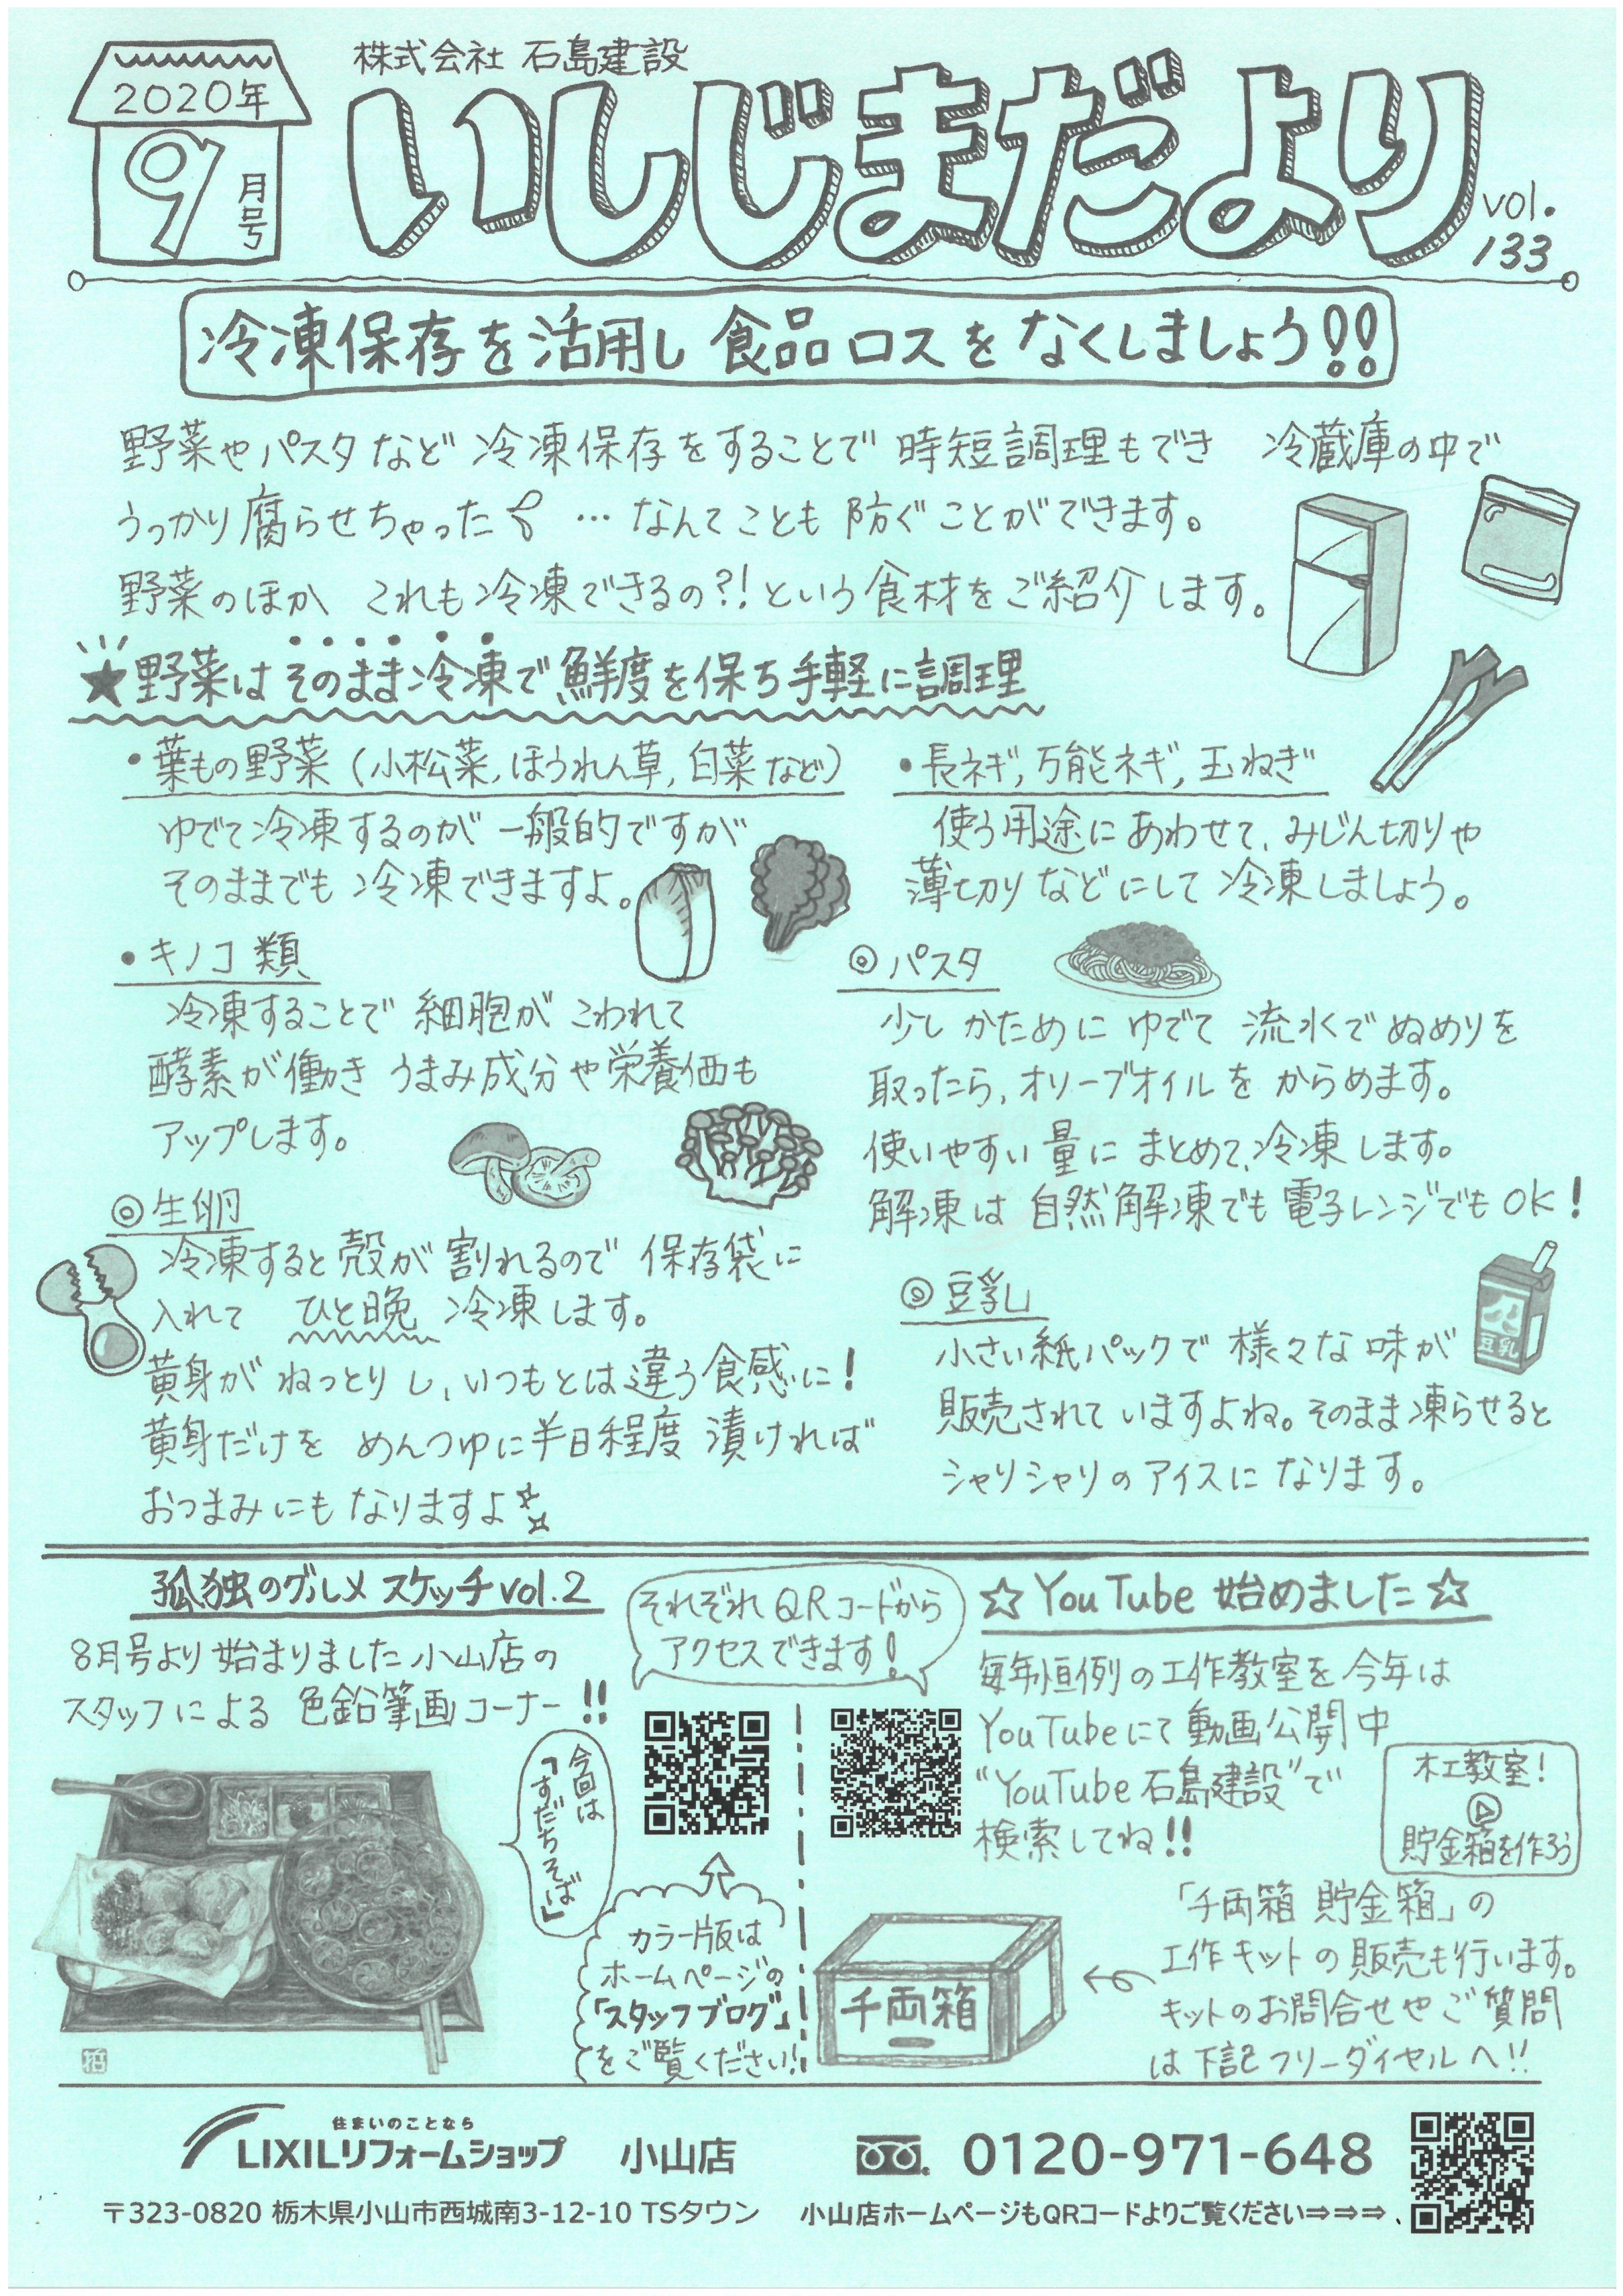 2020年
9月号
株式会社 石島建設
いしじまだより
vol.
133
冷凍保存を活用し 食品ロスを なくしましょう!!
野菜やパスタなど 冷凍保存をすることで 時短調理もでき 冷蔵庫の中で
うっかり腐らせちゃった … なんてことも 防ぐ ことができます。
野菜のほか これも冷凍できるの?! という食材をご紹介します。
★野菜はそのまま冷凍で鮮度を保ち手軽に調理
・葉もの野菜 (小松菜, ほうれん草, 白菜など)
ゆでて冷凍するのが 一般的ですが
そのままでも 冷凍できますよ。
・長ネギ, 万能ネギ, 玉ねぎ
使う用途にあわせて、みじん切りや
薄切りなどにして 冷凍しましょう。
・キノコ類
冷凍することで 細胞が こわれて
酵素が働き うまみ成分や栄養価も
アップします。
◎パスタ
少し かために ゆでて 流水で ぬめりを
取ったら、オリーブオイルを からめます。
使いやすい量に まとめて、冷凍します。
解凍は 自然解凍でも 電子レンジでもOK!
◎生卵
冷凍すると殻が 割れるので 保存袋に
入れて ひと晩 冷凍します。
黄身が ねっとりし、いつもとは違う食感に!
黄身だけを めんつゆに半日程度 漬ければ
おつまみにも なりますよ
◎豆乳
小さい紙パックで 様々な味が
販売されていますよね。そのまま凍らせると
シャリシャリのアイスに なります。
豆乳
孤独のグルメ スケッチ vol.2
8月号より始まりました小山店の
スタッフによる 色鉛筆画コーナー!!
今回は
「すだちそば」
それぞれQRコードから
アクセスできます!
カラー版は
ホームページの
「スタッフブログ」
をご覧ください!
☆YouTube 始めました☆
毎年恒例の工作教室を今年は
YouTubeにて動画公開中
"YouTube 石島建設"で
検索してね!!
木工教室!
貯金箱を作ろう
千両箱
「千両箱 貯金箱」の
工作キットの販売も行います。
キットのお問合せやご質問
は下記フリーダイヤルへ!!
住まいのことなら
LIXILリフォームショップ 小山店
0120-971-648
〒323-0820 栃木県小山市西城南3-12-10 TSタウン
小山店ホームページもQRコードよりご覧ください⇒⇒⇒